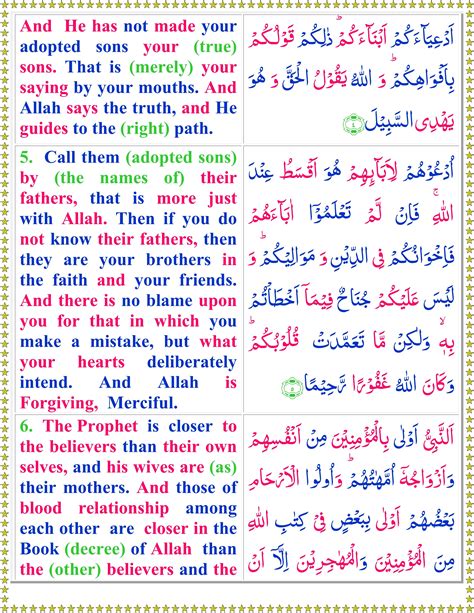 And He has not made your
adopted sons your (true)
sons. That is (merely) your
saying by your mouths. And
Allah says the truth, and He
guides to the (right) path.
اَدْعِيَآءَكُمْ اَبْنَآءَكُمْ ؕ ذٰلِكُمْ قَوْلُكُمْ
بِاَفْوَاهِكُمْ ؕ وَ اللّٰهُ يَقُوْلُ الْحَقَّ وَ هُوَ
يَهْدِى السَّبِيْلَ ۴
5. Call them (adopted sons)
by (the names of) their
fathers, that is more just
with Allah. Then if you do
not know their fathers, then
they are your brothers in
the faith and your friends.
And there is no blame upon
you for that in which you
make a mistake, but what
your hearts deliberately
intend. And Allah is
Forgiving, Merciful.
اُدْعُوْهُمْ لِاٰبَآىِٕهِمْ هُوَ اَقْسَطُ عِنْدَ
اللّٰهِ ۚ فَاِنْ لَّمْ تَعْلَمُوْۤا اٰبَآءَهُمْ
فَاِخْوَانُكُمْ فِى الدِّيْنِ وَ مَوَالِيْكُمْ ؕ وَ
لَيْسَ عَلَيْكُمْ جُنَاحٌ فِيْمَاۤ اَخْطَاْتُمْ
بِهٖ ۙ وَلٰكِنْ مَّا تَعَمَّدَتْ قُلُوْبُكُمْ ؕ
وَكَانَ اللّٰهُ غَفُوْرًا رَّحِيْمًا ۵
6. The Prophet is closer to
the believers than their own
selves, and his wives are (as)
their mothers. And those of
blood relationship among
each other are closer in the
Book (decree) of Allah than
the (other) believers and the
اَلنَّبِىُّ اَوْلٰى بِالْمُؤْمِنِيْنَ مِنْ اَنْفُسِهِمْ
وَاَزْوَاجُهٗۤ اُمَّهٰتُهُمْ ؕ وَاُولُوا الْاَرْحَامِ
بَعْضُهُمْ اَوْلٰى بِبَعْضٍ فِىْ كِتٰبِ اللّٰهِ
مِنَ الْمُؤْمِنِيْنَ وَالْمُهٰجِرِيْنَ اِلَّاۤ اَنْ